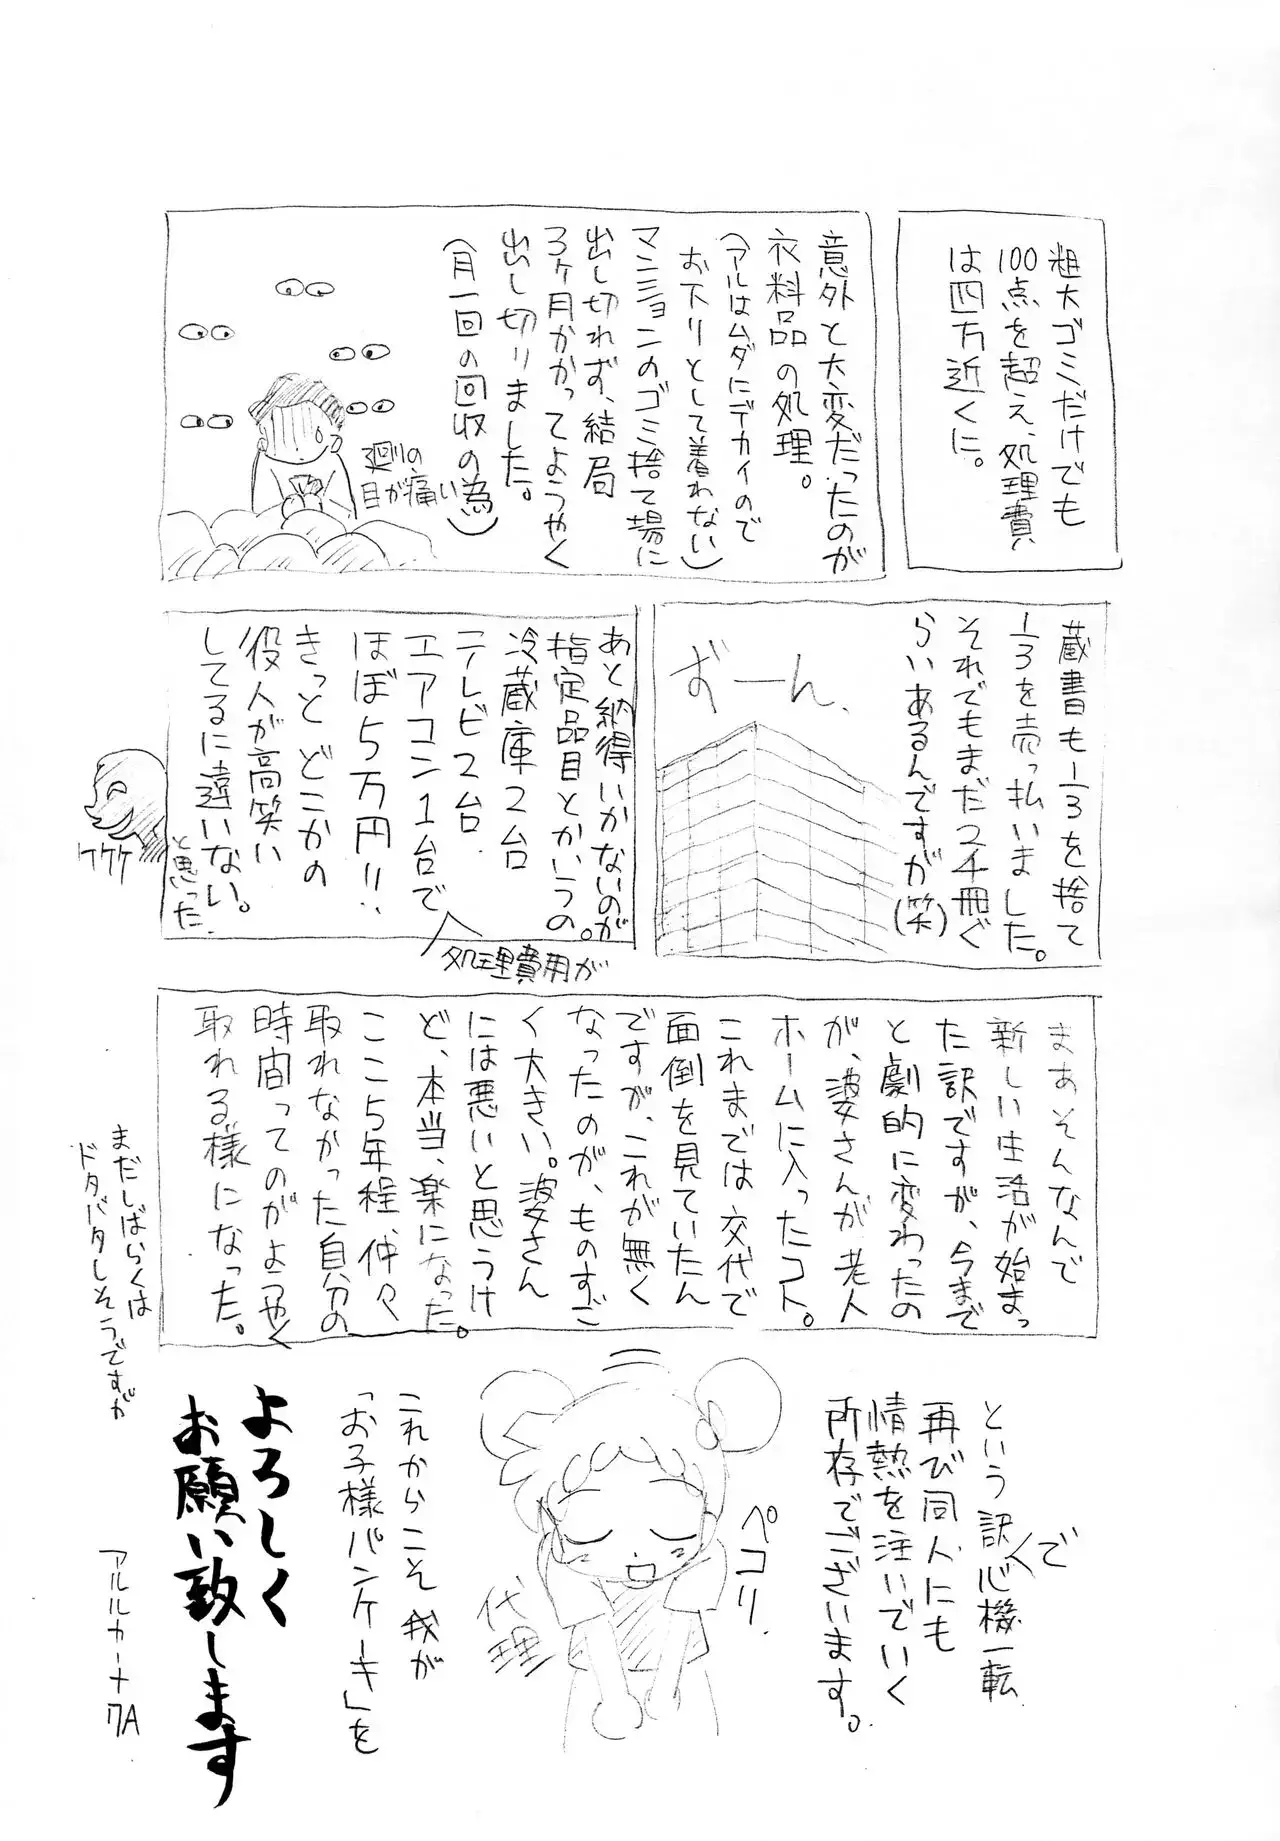 粗大ゴミだけでも
100点を超え、処理費
は四万近くに。
意外と大変だったのが
衣料品の処理。
(アルはムダにデカイので
お下りとして着わない)
マンションのゴミ捨て場に
出し切れず、結局
3ヶ月かかってようやく
出し切りました。
(月一回の回収の為)
廻りの
目が痛い
蔵書も1/3を捨て
1/3を売っ払いました。
それでもまだ2千冊ぐ
らいあるんですが(笑)
ずーん、
あと納得いかないのが
指定品目とかいうの。
冷蔵庫2台
テレビ2台
エアコン1台で
処理費用が
ほぼ5万円!!
きっとどこかの
役人が高笑い
してるに違いない。
と思った
ケケケ
まあそんなんで
新しい生活が始まっ
た訳ですが、今まで
と劇的に変わったの
が、婆さんが老人
ホームに入ったコト。
これまでは交代で
面倒を見ていたん
ですが、これが無く
なったのが、ものすご
く大きい。婆さん
には悪いと思うけ
ど、本当、楽になった。
ここ5年程、仲々
取れなかった自分の
時間ってのがようやく
取れる様になった。
まだしばらくは
ドタバタしそうですが
という訳で
心機一転
再び同人にも
情熱を注いでいく
所存でございます。
ペコリ
代理
これからこそ我が
「お子様パンケーキ」を
よろしく
お願い致します
アルルカーナ7A